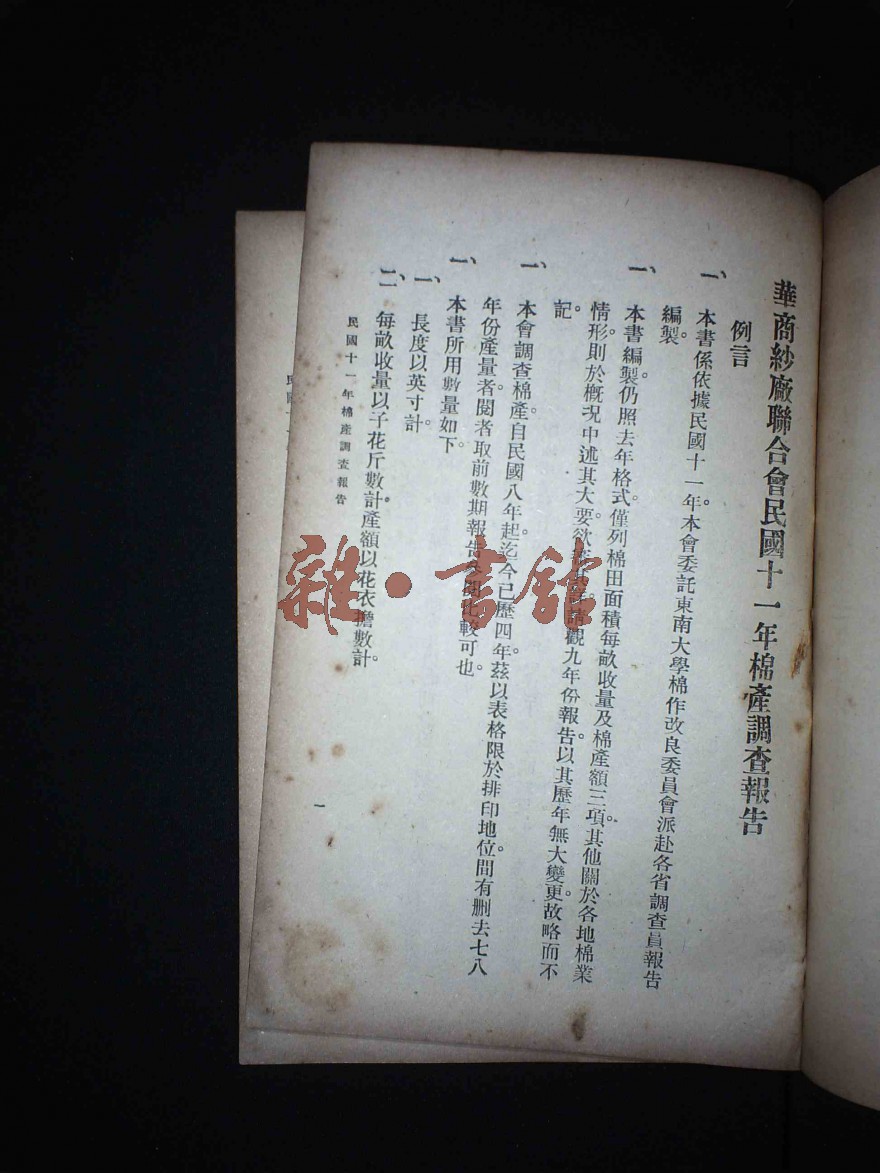 華商紗廠聯合會民國十一年棉產調查報告
例言
一、本書係依據民國十一年。本會委託東南大學棉作改良委員會派赴各省調查員報告
編製。
一、本書編製。仍照去年格式。僅列棉田面積每畝收量及棉產額三項。其他關於各地棉業
情形。則於概況中述其大要。欲 請觀九年份報告。以其歷年無大變更。故略而不
記。
一、本會調查棉產。自民國八年起。迄今已歷四年。茲以表格限於排印地位。間有刪去七八
年份產量者。閱者取前數期報告 比較可也。
一、本書所用數量如下。
一、長度以英寸計。
二、每畝收量以子花斤數計。產額以花衣擔數計。
民國十一年棉產調查報告
一
雜·書館